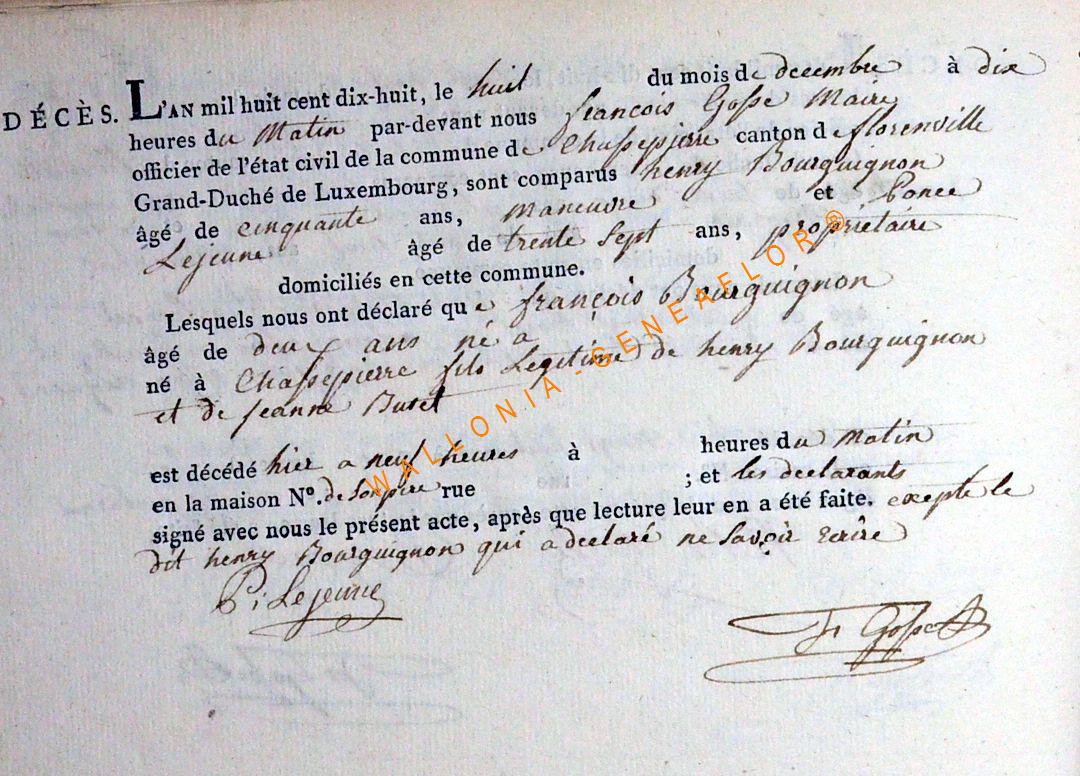 DÉCÈS. L'AN mil huit cent dix-huit, le huit du mois de decembre à dix
heures du Matin par-devant nous françois Gosse Maire
officier de l'état civil de la commune de Chassepierre canton de florenville
Grand-Duché de Luxembourg, sont comparus henry Bourguignon
âgé de cinquante ans, Maneuvre et Ponce
Lejeune âgé de trente Sept ans, propriétaire
domiciliés en cette commune.
Lesquels nous ont déclaré que françois Bourguignon
âgé de deux ans né a
né à Chassepierre fils Legitime de henry Bourguignon
et de Jeanne Buset
est décédé hier a neuf heures à heures du Matin
en la maison N°. de son pere rue ; et les declarants
signé avec nous le présent acte, après que lecture leur en a été faite. exepte le
dit henry Bourguignon qui a declaré ne Savoir Ecrire
P. Lejeune
fr Gosse
WALLONIA-GENEAFLOR®